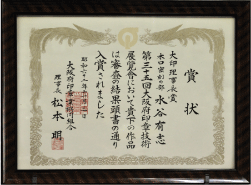 賞状
大印理事長賞
木口密刻の部 水谷有志
第三十五回大阪府印章技術
展覧会において貴下の作品
は審査の結果頭書の通り
入賞されました
昭和六十
大阪府印章業協同組合
理事長 松本 明